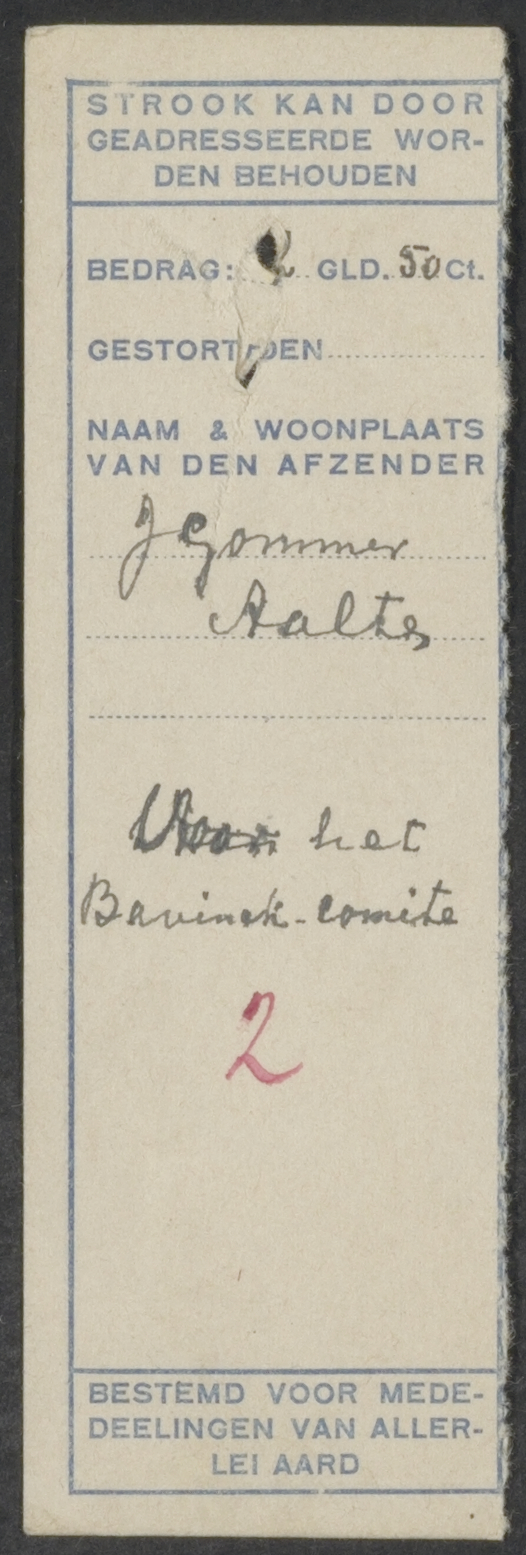 STROOK KAN DOOR
GEADRESSEERDE WOR-
DEN BEHOUDEN
BEDRAG: 2 GLD. 50 Ct.
GESTORT DEN
NAAM & WOONPLAATS
VAN DEN AFZENDER
J Gommer
Aalten
Voor het
Bavinck-comite
2
BESTEMD VOOR MEDE-
DEELINGEN VAN ALLER-
LEI AARD